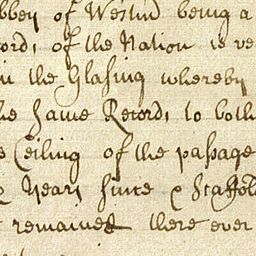 bbey of Westm̃ being a
cords of the Nation is ve
in the Glasing whereby
he same Records to both
e Ceiling of the passage
Years since e Scaffol
remained there ever